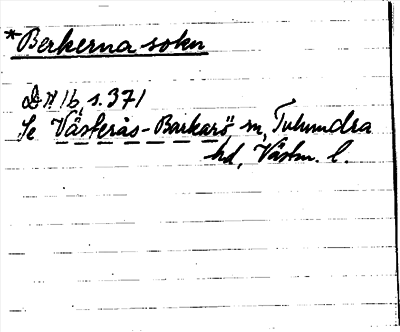 *Berkerna sokn
DN 1b, s. 371
Se Västerås-Barkarö sn, Tuhundra
hd, Västm. l.